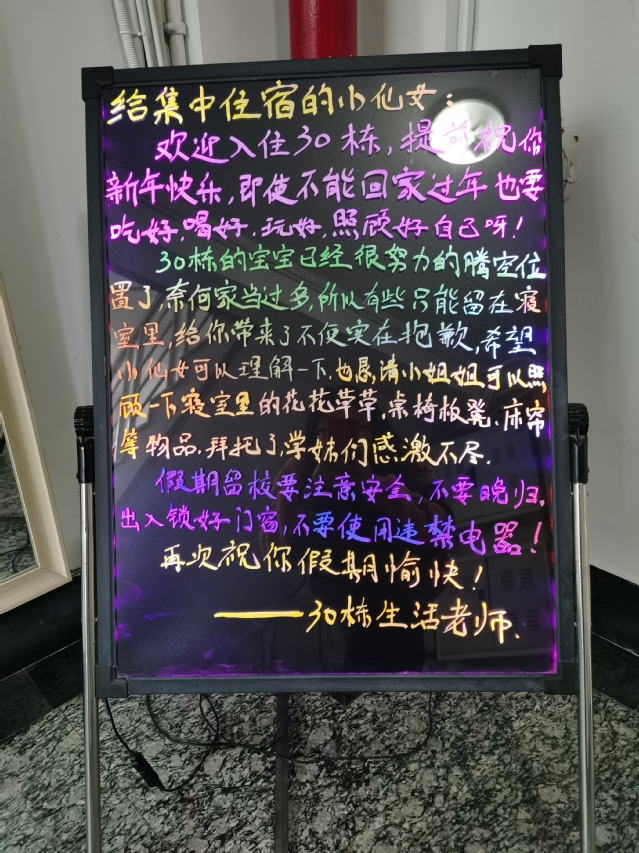 给集中住宿的小仙女:
欢迎入住30栋,提前祝你
新年快乐,即使不能回家过年也要
吃好,喝好,玩好,照顾好自己呀!
30栋的宝宝已经很努力的腾空位
置了,奈何家当过多,所以有些只能留在寝
室里,给你带来了不便实在抱歉,希望
小仙女可以理解一下,也恳请小姐姐可以照
顾一下寝室里的花花草草,桌椅板凳、床帘
等物品,拜托了,学妹们感激不尽.
假期留校要注意安全,不要晚归,
出入锁好门窗,不要使用违禁电器!
再次祝你假期愉快!
——30栋生活老师.